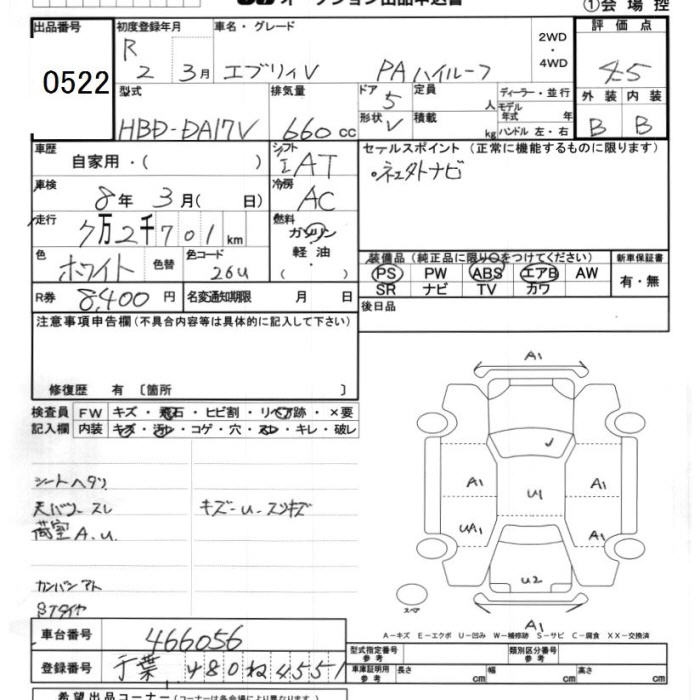 オークション出品申込書 ①会場控
出品番号 初度登録年月 車名・グレード 2WD・4WD 評価点
0522 R2 3月 エブリィV PAハイルーフ 4.5
型式 排気量 ドア 5 定員 人 ディーラー・並行 外装 内装
HBD-DA17V 660cc 形状 V 積載 kg モデル年式 年 ハンドル 左・右 B B
車歴 自家用・( ) シフト IAT セールスポイント (正常に機能するものに限ります)
車検 8年 3月( 日) 冷房 AC
走行 7万2千701km 燃料 ガソリン・軽油・( )
色 ホワイト 色替 色コード 26U
装備品 (純正品に限り○をつけてください) 新車保証書
PS PW ABS エアB AW 有・無
SR ナビ TV カワ
R券 8,400円 名変通知期限 月 日 後日品
注意事項申告欄 (不具合内容等は具体的に記入して下さい)
修復歴 有 〔箇所 〕
検査員記入欄 FW キズ・飛石・ヒビ割・リペア跡・×要
内装 キズ・汚レ・コゲ・穴・スレ・キレ・破レ
シートヘタリ
天バリ スレ キズ-U-スリキズ
荷室 A.U.
カンバンアト
A1
A1 U1 A1
UA1 A1
U2
A1
スペア
A-キズ E-エクボ U-凹み W-補修跡 S-サビ C-腐食 XX-交換済
車台番号 466056
登録番号 千葉 480 ね 4551
型式指定番号 参考 類別区分番号 参考
車庫証明用 参考 長さ cm 幅 cm 高さ cm
希望出品コーナー (コーナーは各会場により異なります。)